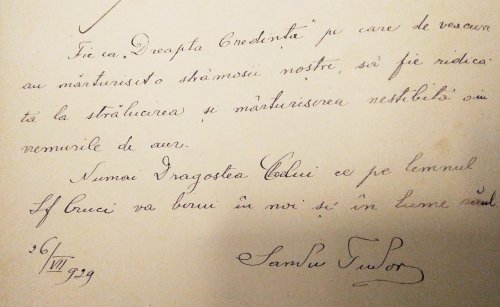 Fie ca „Dreapta Credință" pe care de veacuri
au mărturisit-o strămoșii noștri, să fie ridica-
tă la strălucirea și mărturisirea neștirbită din
vremurile de aur.
Numai Dragostea Celui ce pe lemnul
Sf Cruci va birui în noi și în lume răul
26/VII 929
Sandu Tudor